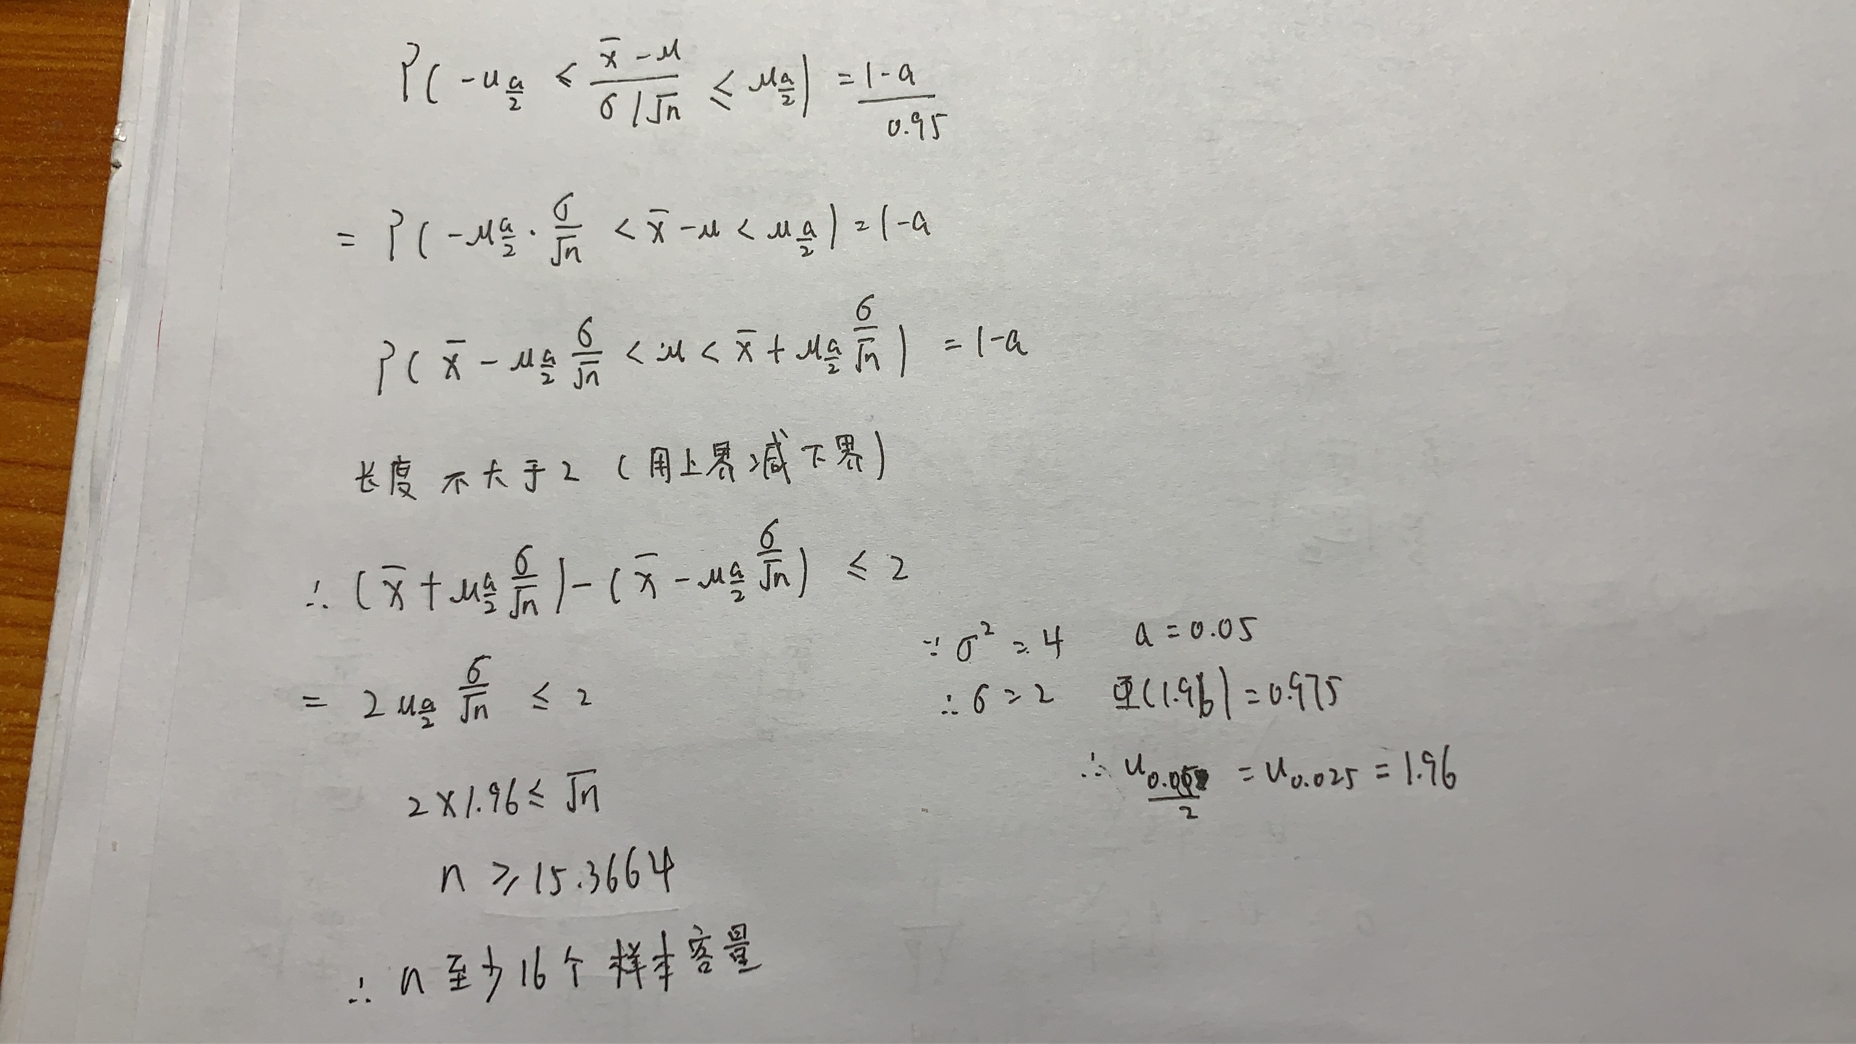 P(-u a/2 ≤ (x̄-μ)/(σ/√n) ≤ μ a/2) = 1-a
0.95
= P(-μ a/2 · σ/√n < x̄-μ < μ a/2) = 1-a
P(x̄ - μ a/2 σ/√n < μ < x̄ + μ a/2 σ/√n) = 1-a
长度不大于2(用上界减下界)
∴ (x̄ + μ a/2 σ/√n) - (x̄ - μ a/2 σ/√n) ≤ 2
= 2 u a/2 σ/√n ≤ 2
2×1.96 ≤ √n
n ≥ 15.3664
∴ n至少16个样本容量
∵ σ² = 4 a = 0.05
∴ σ = 2 Φ(1.96) = 0.975
∴ u 0.05/2 = u 0.025 = 1.96